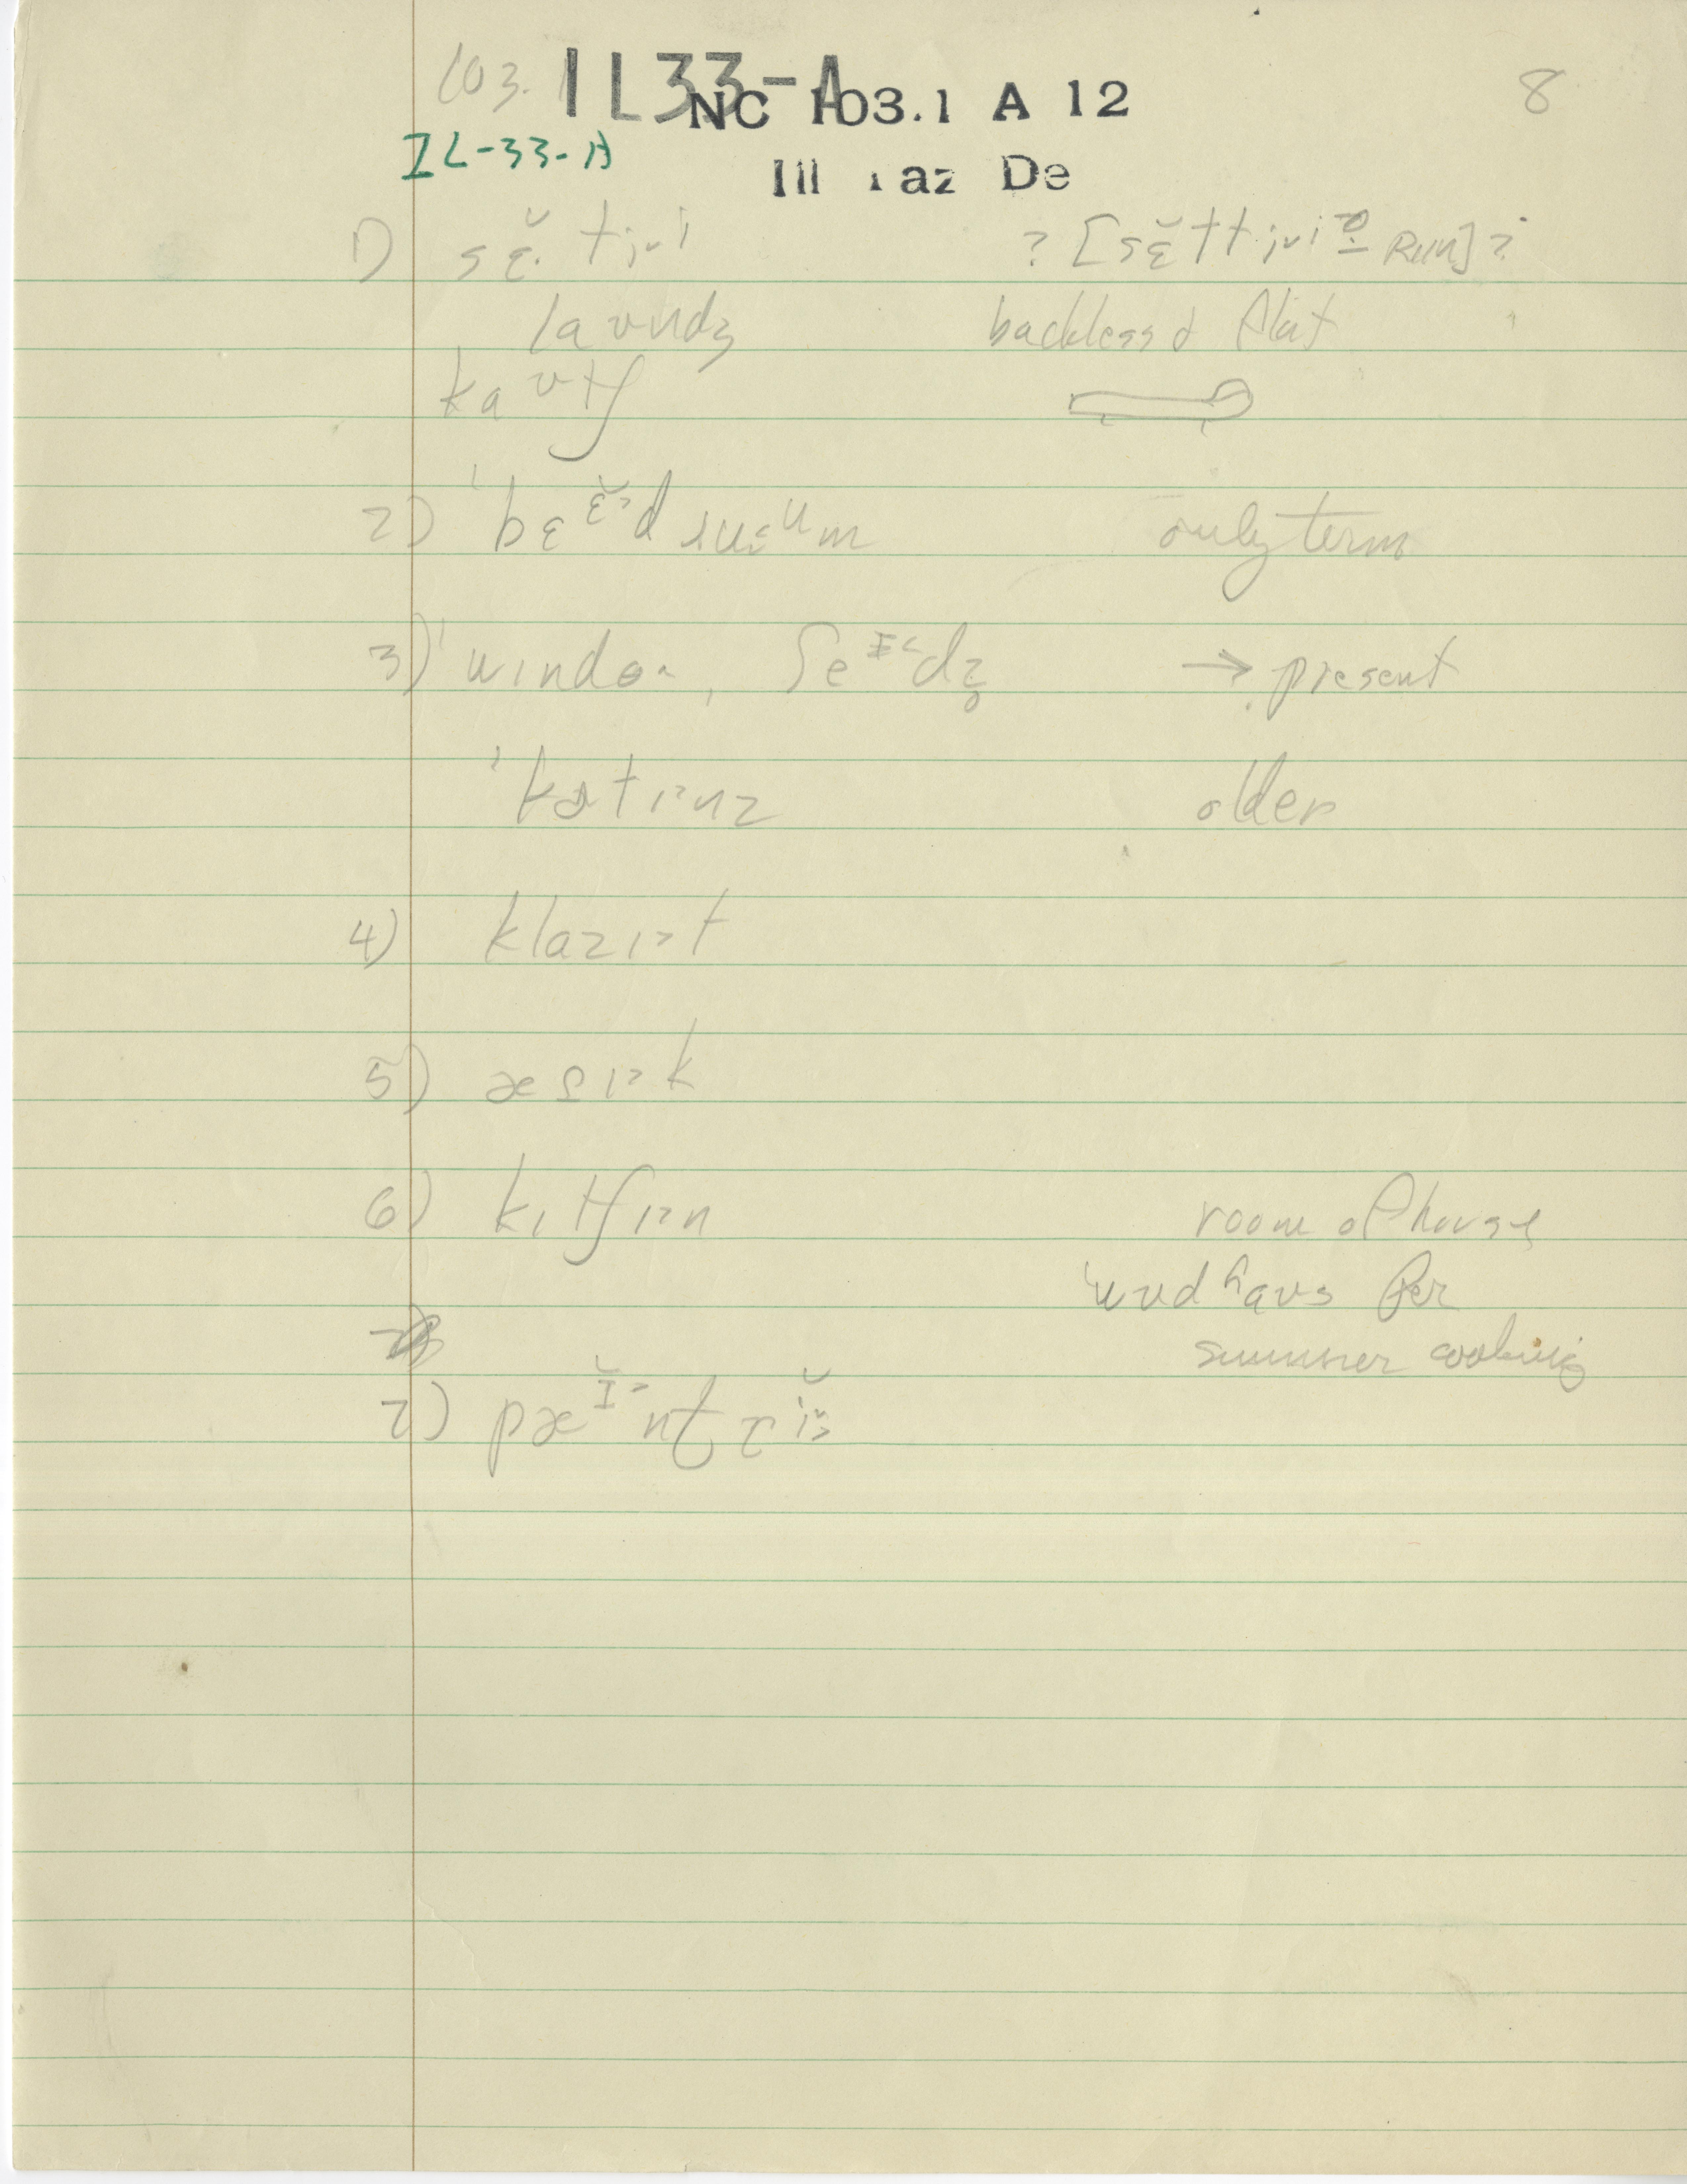 103. 1L33-A 8
NC 103.1 A 12
IL-33-A
Ill az De
1) sɛ̆. ti˅i ? [sɛ̆tti˅i RUN] ?
laʊndʒ backless & flat
kaʊtʃ
2) 'bɛɛ̆˃d ɹuᵘm only term
3) 'windo˄, ʃeᴵ˂dz̥ → present
'kɜtɪ˃nz older
4) klazɪ˃t
5) ɪ˃k
6) kɪtʃɪ˃n room of house
'wudhaʊs for
summer cooking
7) pæᴵ̆˃ntrĭ˃